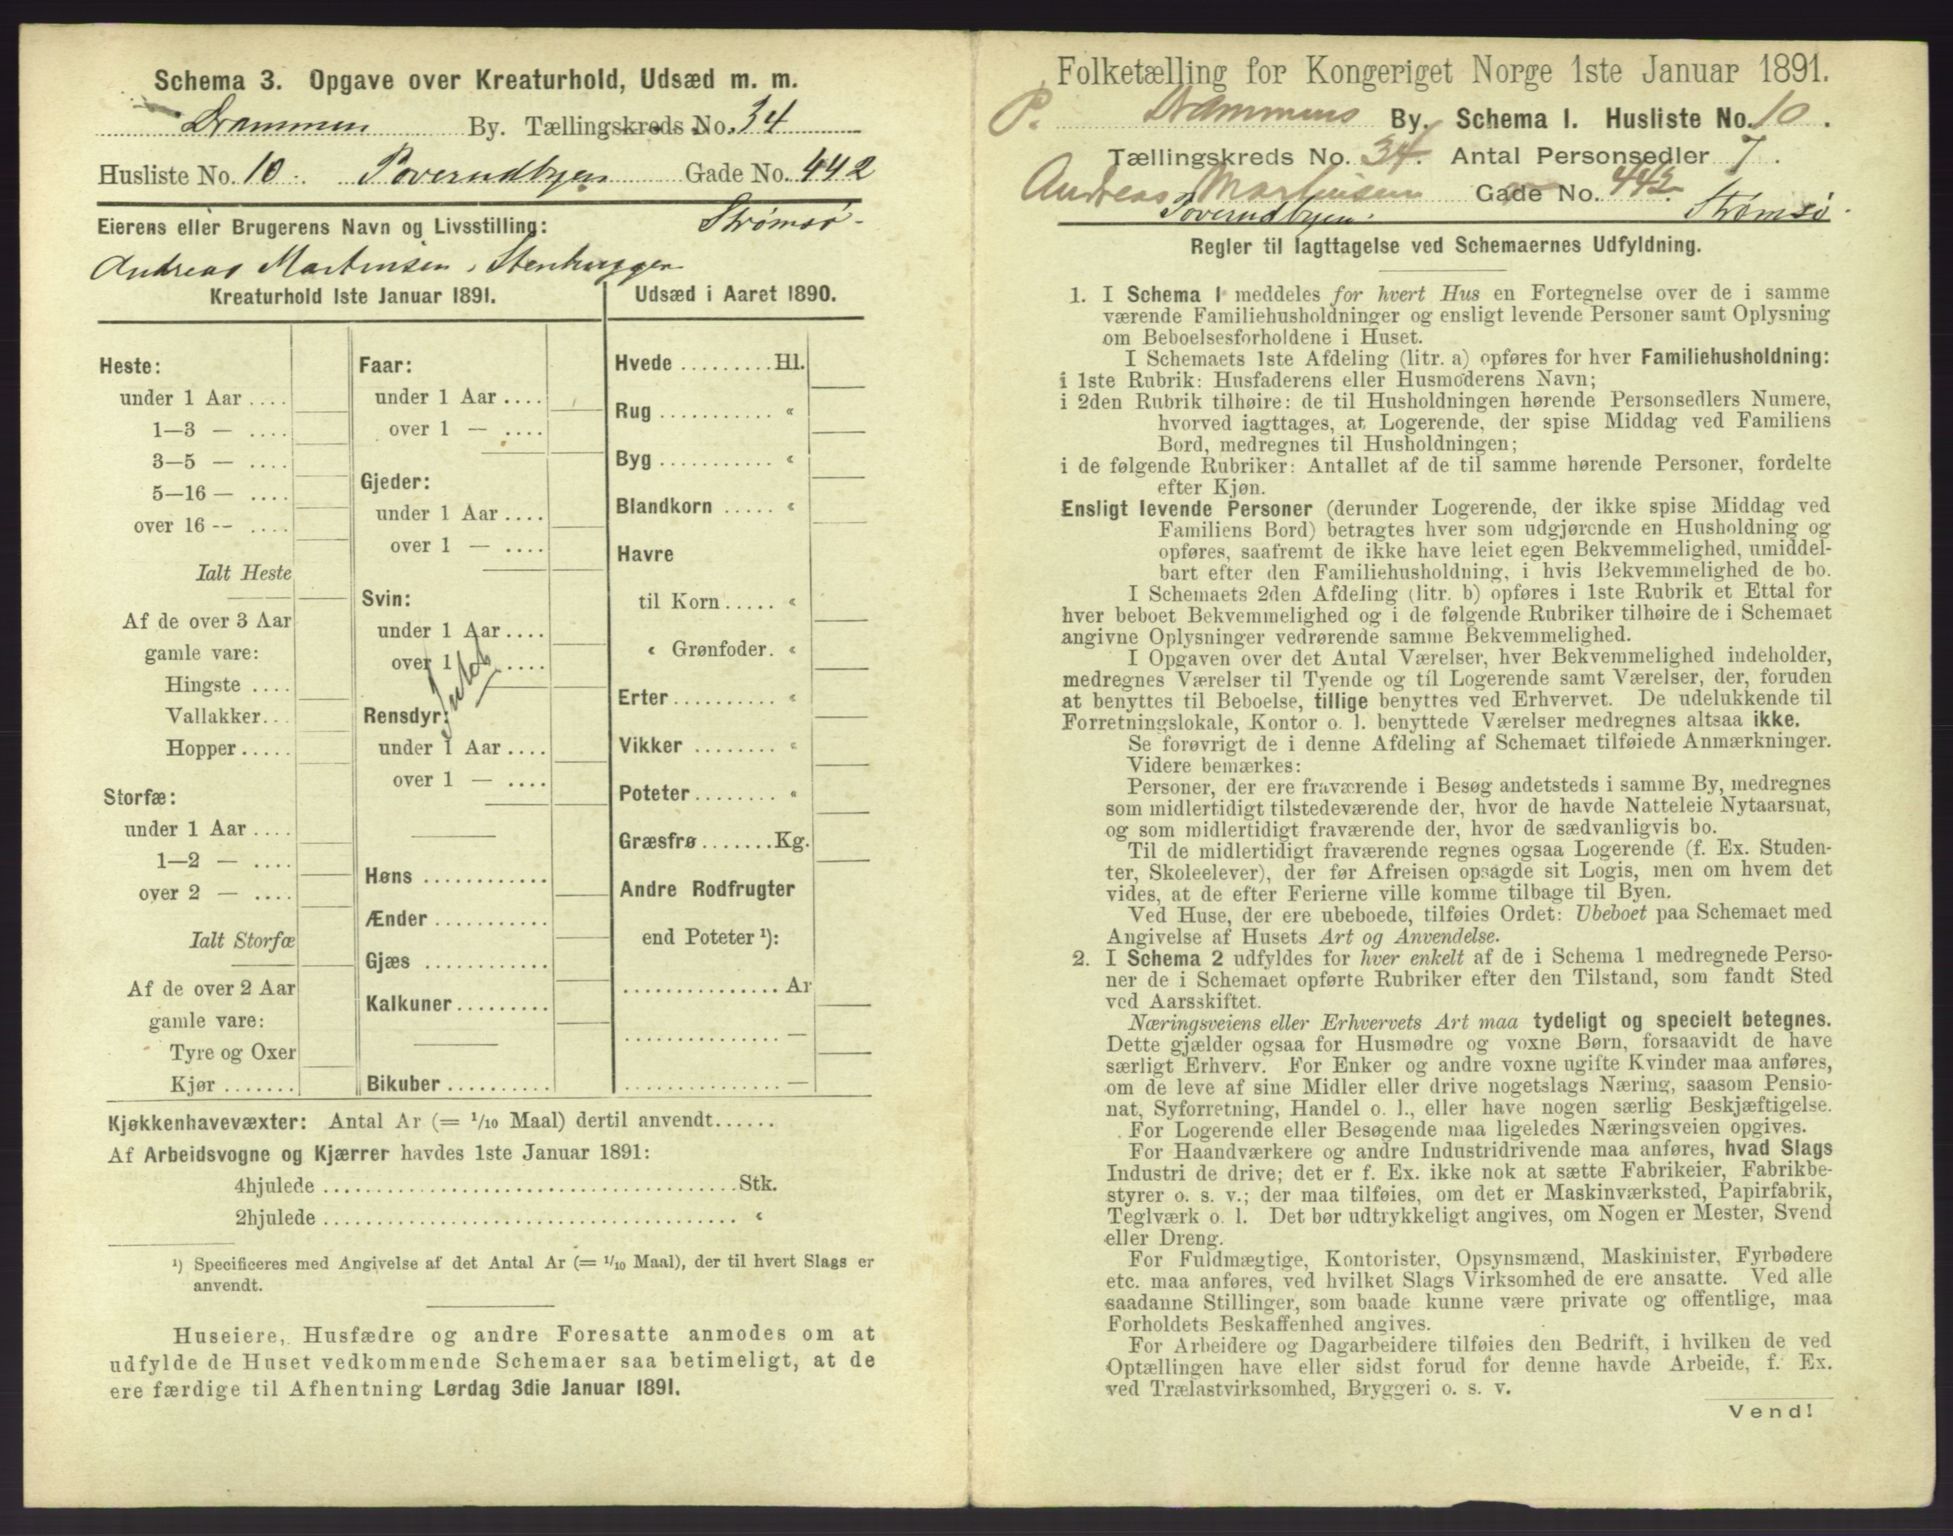 Schema 3. Opgave over Kreaturhold, Udsæd m. m.
Drammen By. Tællingskreds No. 34
Husliste No. 10. Poverudbyen Gade No. 442
Eierens eller Brugerens Navn og Livsstilling: Strømsø.
Andreas Martinsen, Stenhugger
Kreaturhold 1ste Januar 1891.
Heste:
under 1 Aar ....
1—3 — ....
3—5 — ....
5—16 — ....
over 16 -- ....
Ialt Heste
Af de over 3 Aar
gamle vare:
Hingste ....
Vallakker...
Hopper .....
Storfæ:
under 1 Aar ....
1—2 — ....
over 2 — ....
Ialt Storfæ
Af de over 2 Aar
gamle vare:
Tyre og Oxer
Kjør .......
Faar:
under 1 Aar ....
over 1 — ....
Gjeder:
under 1 Aar ....
over 1 — ....
Svin:
under 1 Aar ....
over 1 — .....
Intet
Rensdyr:
under 1 Aar ....
over 1 — ....
Høns ............
Ænder ...........
Gjæs ............
Kalkuner .........
Bikuber ..........
Udsæd i Aaret 1890.
Hvede .........Hl.
Rug ........... «
Byg ........... «
Blandkorn ..... «
Havre
til Korn ..... «
« Grønfoder. «
Erter .......... «
Vikker ......... «
Poteter ........ «
Græsfrø .......Kg.
Andre Rodfrugter
end Poteter ¹):
............... Ar
............... —
............... —
Kjøkkenhavevæxter: Antal Ar (= 1/10 Maal) dertil anvendt......
Af Arbeidsvogne og Kjærrer havdes 1ste Januar 1891:
4hjulede ......................................Stk.
2hjulede ...................................... «
¹) Specificeres med Angivelse af det Antal Ar (= 1/10 Maal), der til hvert Slags er
anvendt.
Huseiere, Husfædre og andre Foresatte anmodes om at
udfylde de Huset vedkommende Schemaer saa betimeligt, at de
ere færdige til Afhentning Lørdag 3die Januar 1891.
Folketælling for Kongeriget Norge 1ste Januar 1891.
P. Drammens By. Schema I. Husliste No. 10.
Tællingskreds No. 34. Antal Personsedler 7.
Andreas Martinsen Gade No. 442
Poverudbyen. Strømsø.
Regler til Iagttagelse ved Schemaernes Udfyldning.
1. I Schema 1 meddeles for hvert Hus en Fortegnelse over de i samme
værende Familiehusholdninger og ensligt levende Personer samt Oplysning
om Beboelsesforholdene i Huset.
I Schemaets 1ste Afdeling (litr. a) opføres for hver Familiehusholdning:
i 1ste Rubrik: Husfaderens eller Husmoderens Navn;
i 2den Rubrik tilhøire: de til Husholdningen hørende Personsedlers Numere,
hvorved iagttages, at Logerende, der spise Middag ved Familiens
Bord, medregnes til Husholdningen;
i de følgende Rubriker: Antallet af de til samme hørende Personer, fordelte
efter Kjøn.
Ensligt levende Personer (derunder Logerende, der ikke spise Middag ved
Familiens Bord) betragtes hver som udgjørende en Husholdning og
opføres, saafremt de ikke have leiet egen Bekvemmelighed, umiddel-
bart efter den Familiehusholdning, i hvis Bekvemmelighed de bo.
I Schemaets 2den Afdeling (litr. b) opføres i 1ste Rubrik et Ettal for
hver beboet Bekvemmelighed og i de følgende Rubriker tilhøire de i Schemaet
angivne Oplysninger vedrørende samme Bekvemmelighed.
I Opgaven over det Antal Værelser, hver Bekvemmelighed indeholder,
medregnes Værelser til Tyende og til Logerende samt Værelser, der, foruden
at benyttes til Beboelse, tillige benyttes ved Erhvervet. De udelukkende til
Forretningslokale, Kontor o. l. benyttede Værelser medregnes altsaa ikke.
Se forøvrigt de i denne Afdeling af Schemaet tilføiede Anmærkninger.
Videre bemærkes:
Personer, der ere fraværende i Besøg andetsteds i samme By, medregnes
som midlertidigt tilstedeværende der, hvor de havde Natteleie Nytaarsnat,
og som midlertidigt fraværende der, hvor de sædvanligvis bo.
Til de midlertidigt fraværende regnes ogsaa Logerende (f. Ex. Studen-
ter, Skoleelever), der før Afreisen opsagde sit Logis, men om hvem det
vides, at de efter Ferierne ville komme tilbage til Byen.
Ved Huse, der ere ubeboede, tilføies Ordet: Ubeboet paa Schemaet med
Angivelse af Husets Art og Anvendelse.
2. I Schema 2 udfyldes for hver enkelt af de i Schema 1 medregnede Perso-
ner de i Schemaet opførte Rubriker efter den Tilstand, som fandt Sted
ved Aarsskiftet.
Næringsveiens eller Erhvervets Art maa tydeligt og specielt betegnes.
Dette gjælder ogsaa for Husmødre og voxne Børn, forsaavidt de have
særligt Erhverv. For Enker og andre voxne ugifte Kvinder maa anføres,
om de leve af sine Midler eller drive nogetslags Næring, saasom Pensio-
nat, Syforretning, Handel o. l., eller have nogen særlig Beskjæftigelse.
For Logerende eller Besøgende maa ligeledes Næringsveien opgives.
For Haandværkere og andre Industridrivende maa anføres, hvad Slags
Industri de drive; det er f. Ex. ikke nok at sætte Fabrikeier, Fabrikbe-
styrer o. s. v.; der maa tilføies, om det er Maskinværksted, Papirfabrik,
Teglværk o. l. Det bør udtrykkeligt angives, om Nogen er Mester, Svend
eller Dreng.
For Fuldmægtige, Kontorister, Opsynsmænd, Maskinister, Fyrbødere
etc. maa anføres, ved hvilket Slags Virksomhed de ere ansatte. Ved alle
saadanne Stillinger, som baade kunne være private og offentlige, maa
Forholdets Beskaffenhed angives.
For Arbeidere og Dagarbeidere tilføies den Bedrift, i hvilken de ved
Optællingen have eller sidst forud for denne havde Arbeide, f. Ex.
ved Trælastvirksomhed, Bryggeri o. s. v.
Vend!